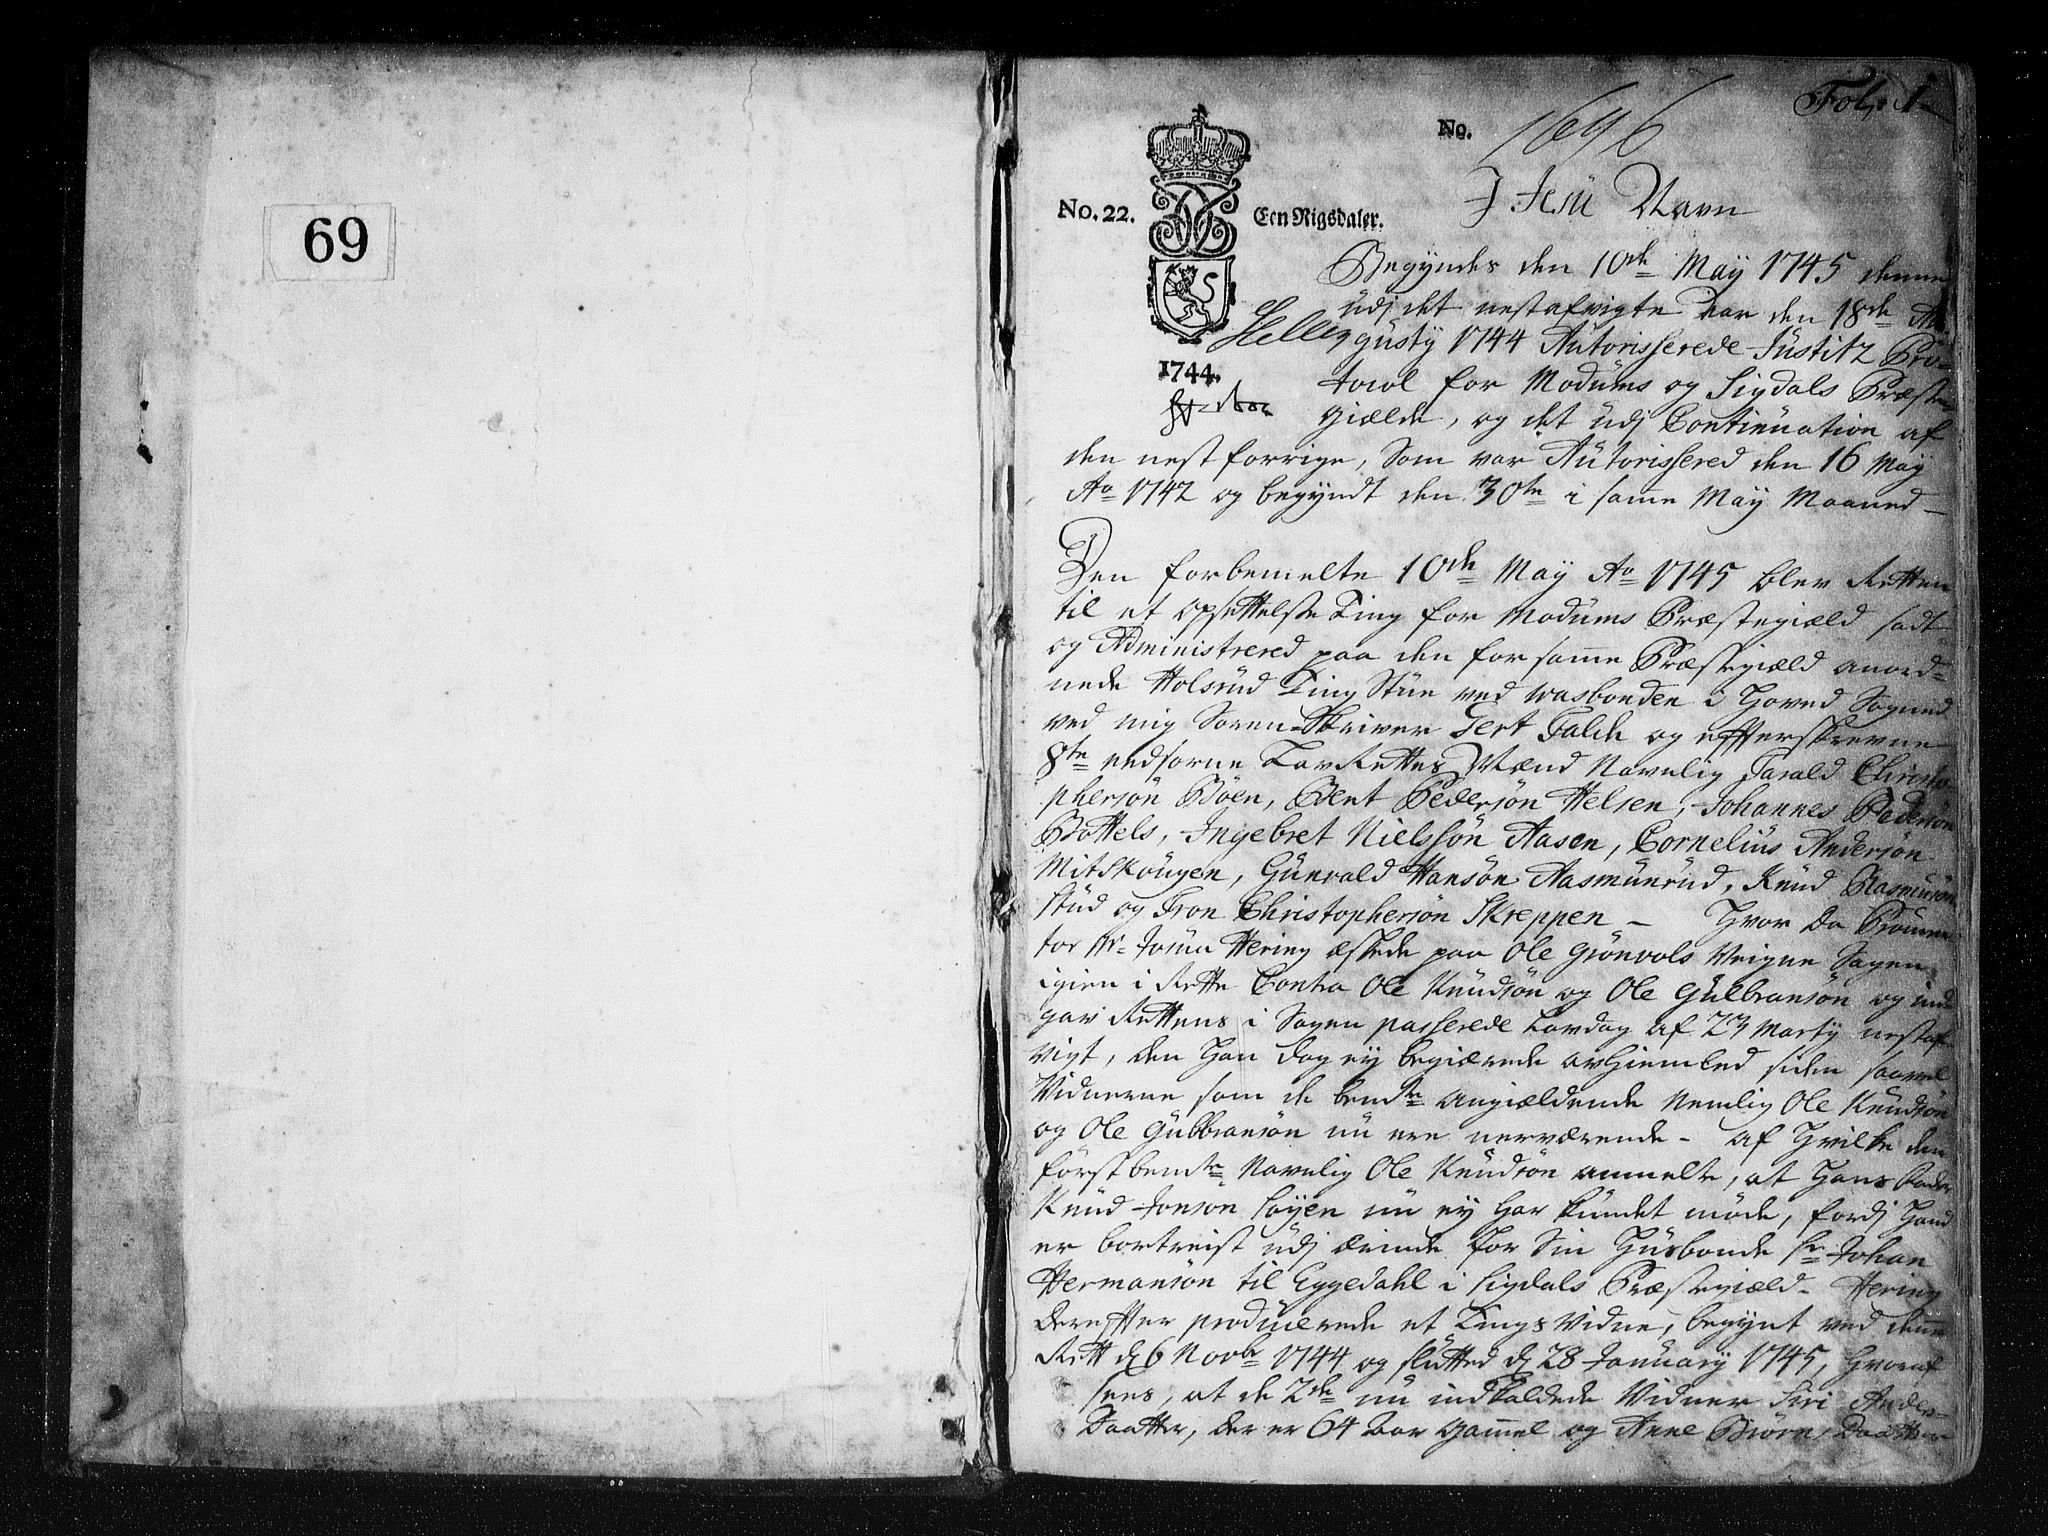 69
Fol. 1
No. 1696
I Jesü Navn
No. 22.
Een Rigsdaler.
1744.
Begyndes den 10de May 1745 denne
udj det nestafvigte Aar den 18de Au
gusty 1744 Autorisserede Justitz Pro-
tocol for Modums og Sigdals Præste
gielde, og det udj Continuation af
den nest forrige, Som var Autorissered den 16 May
Ao 1742 og begyndt den 30te i samme May Maaned
Den forbemelte 10de May Ao 1745 blev Retten
til et opsettelse Ting for Modums Præstegield sadt
og Administrered paa den for samme Præstegield anord=
nede Holsrud Ting Stue ved Wasbonden i Hoved Sognet
ved mig Soren-Skriver Gert Falck og effterskrevne
8te eedsorne LavRettes Mænd Navnlig Tarald Christo
phersøn Bøen, Bent Pedersøn Helsen, Johannes Pedersøn
Bottels, Ingebret Nielssøn Aasen, Cornelius Andersøn
Mitskougen, Gunvald Hansøn Aasmunrud, Knud Rasmusøn
Stud og Iron Christophersøn Skreppen - Hvor Da Procura
tor Mr Joema Hering æskede paa Ole Grønvols Veigne Sagen
igien i Rette Contra Ole Knudsøn og Ole Gulbransøn og ind
gav Rettens i Sagen passerede Lavdag af 23 Marty nestaf
vigt, den Han dog ey begiærede avhiemled siden saavel
Vidnerne som de bemte Angiældende Nemlig Ole Knudsøn
og Ole Gulbransøn nu ere nerværende - Af Hvilke den
førstbemte Navnlig Ole Knudsøn anmelte, at Hans Fader
Knud Jonsøn Løyen nu ey har kundet møde, fordj Hand
er bortreist udj ærinde for Sin Husbonde Sr Johan
Hermansøn til Eggedahl i Sigdals Præstegield - Hering
Dereffter producerede et TingsVidne, begynt ved denne
Rett d 6 Novbr 1744 og slutted d 28 January 1745, Hvoraf
sees, at de 2de nu indkaldede Vidner Siri Anders-
Daatter, der er 64 Aar Gammel og Anne Biørns Daatter